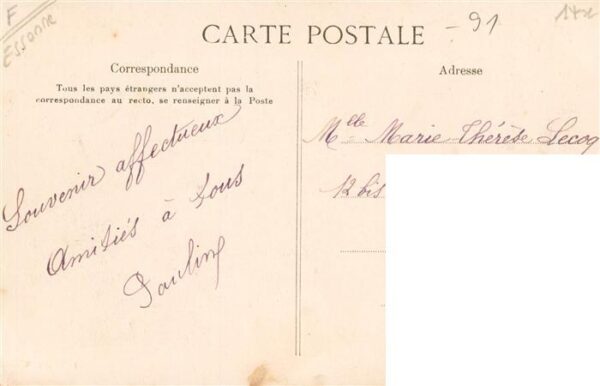 F
Essonne
CARTE POSTALE
- 91
Correspondance
Tous les pays étrangers n'acceptent pas la
correspondance au recto, se renseigner à la Poste
Souvenir affectueux
Amitiés à tous
Adresse
Mlle Marie Thérèse Lecoq
12 bis